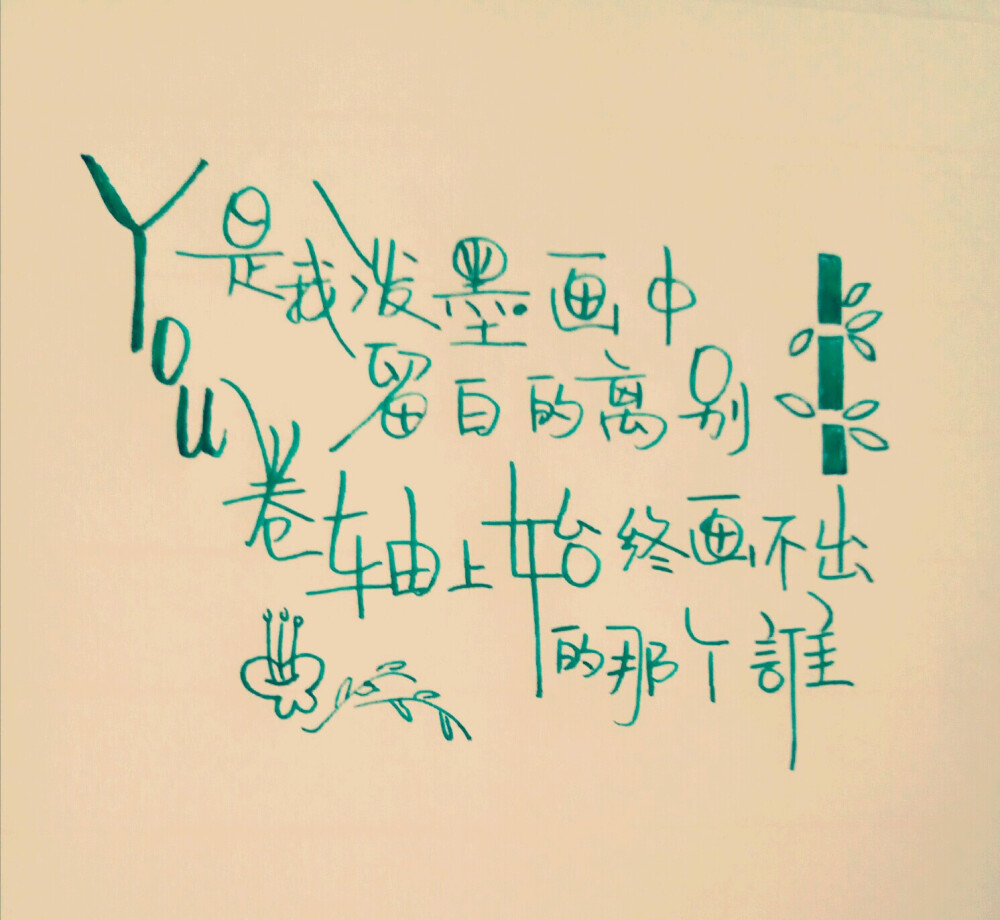 You是我泼墨画中
留白的离别
卷轴上始终画不出
的那个誰